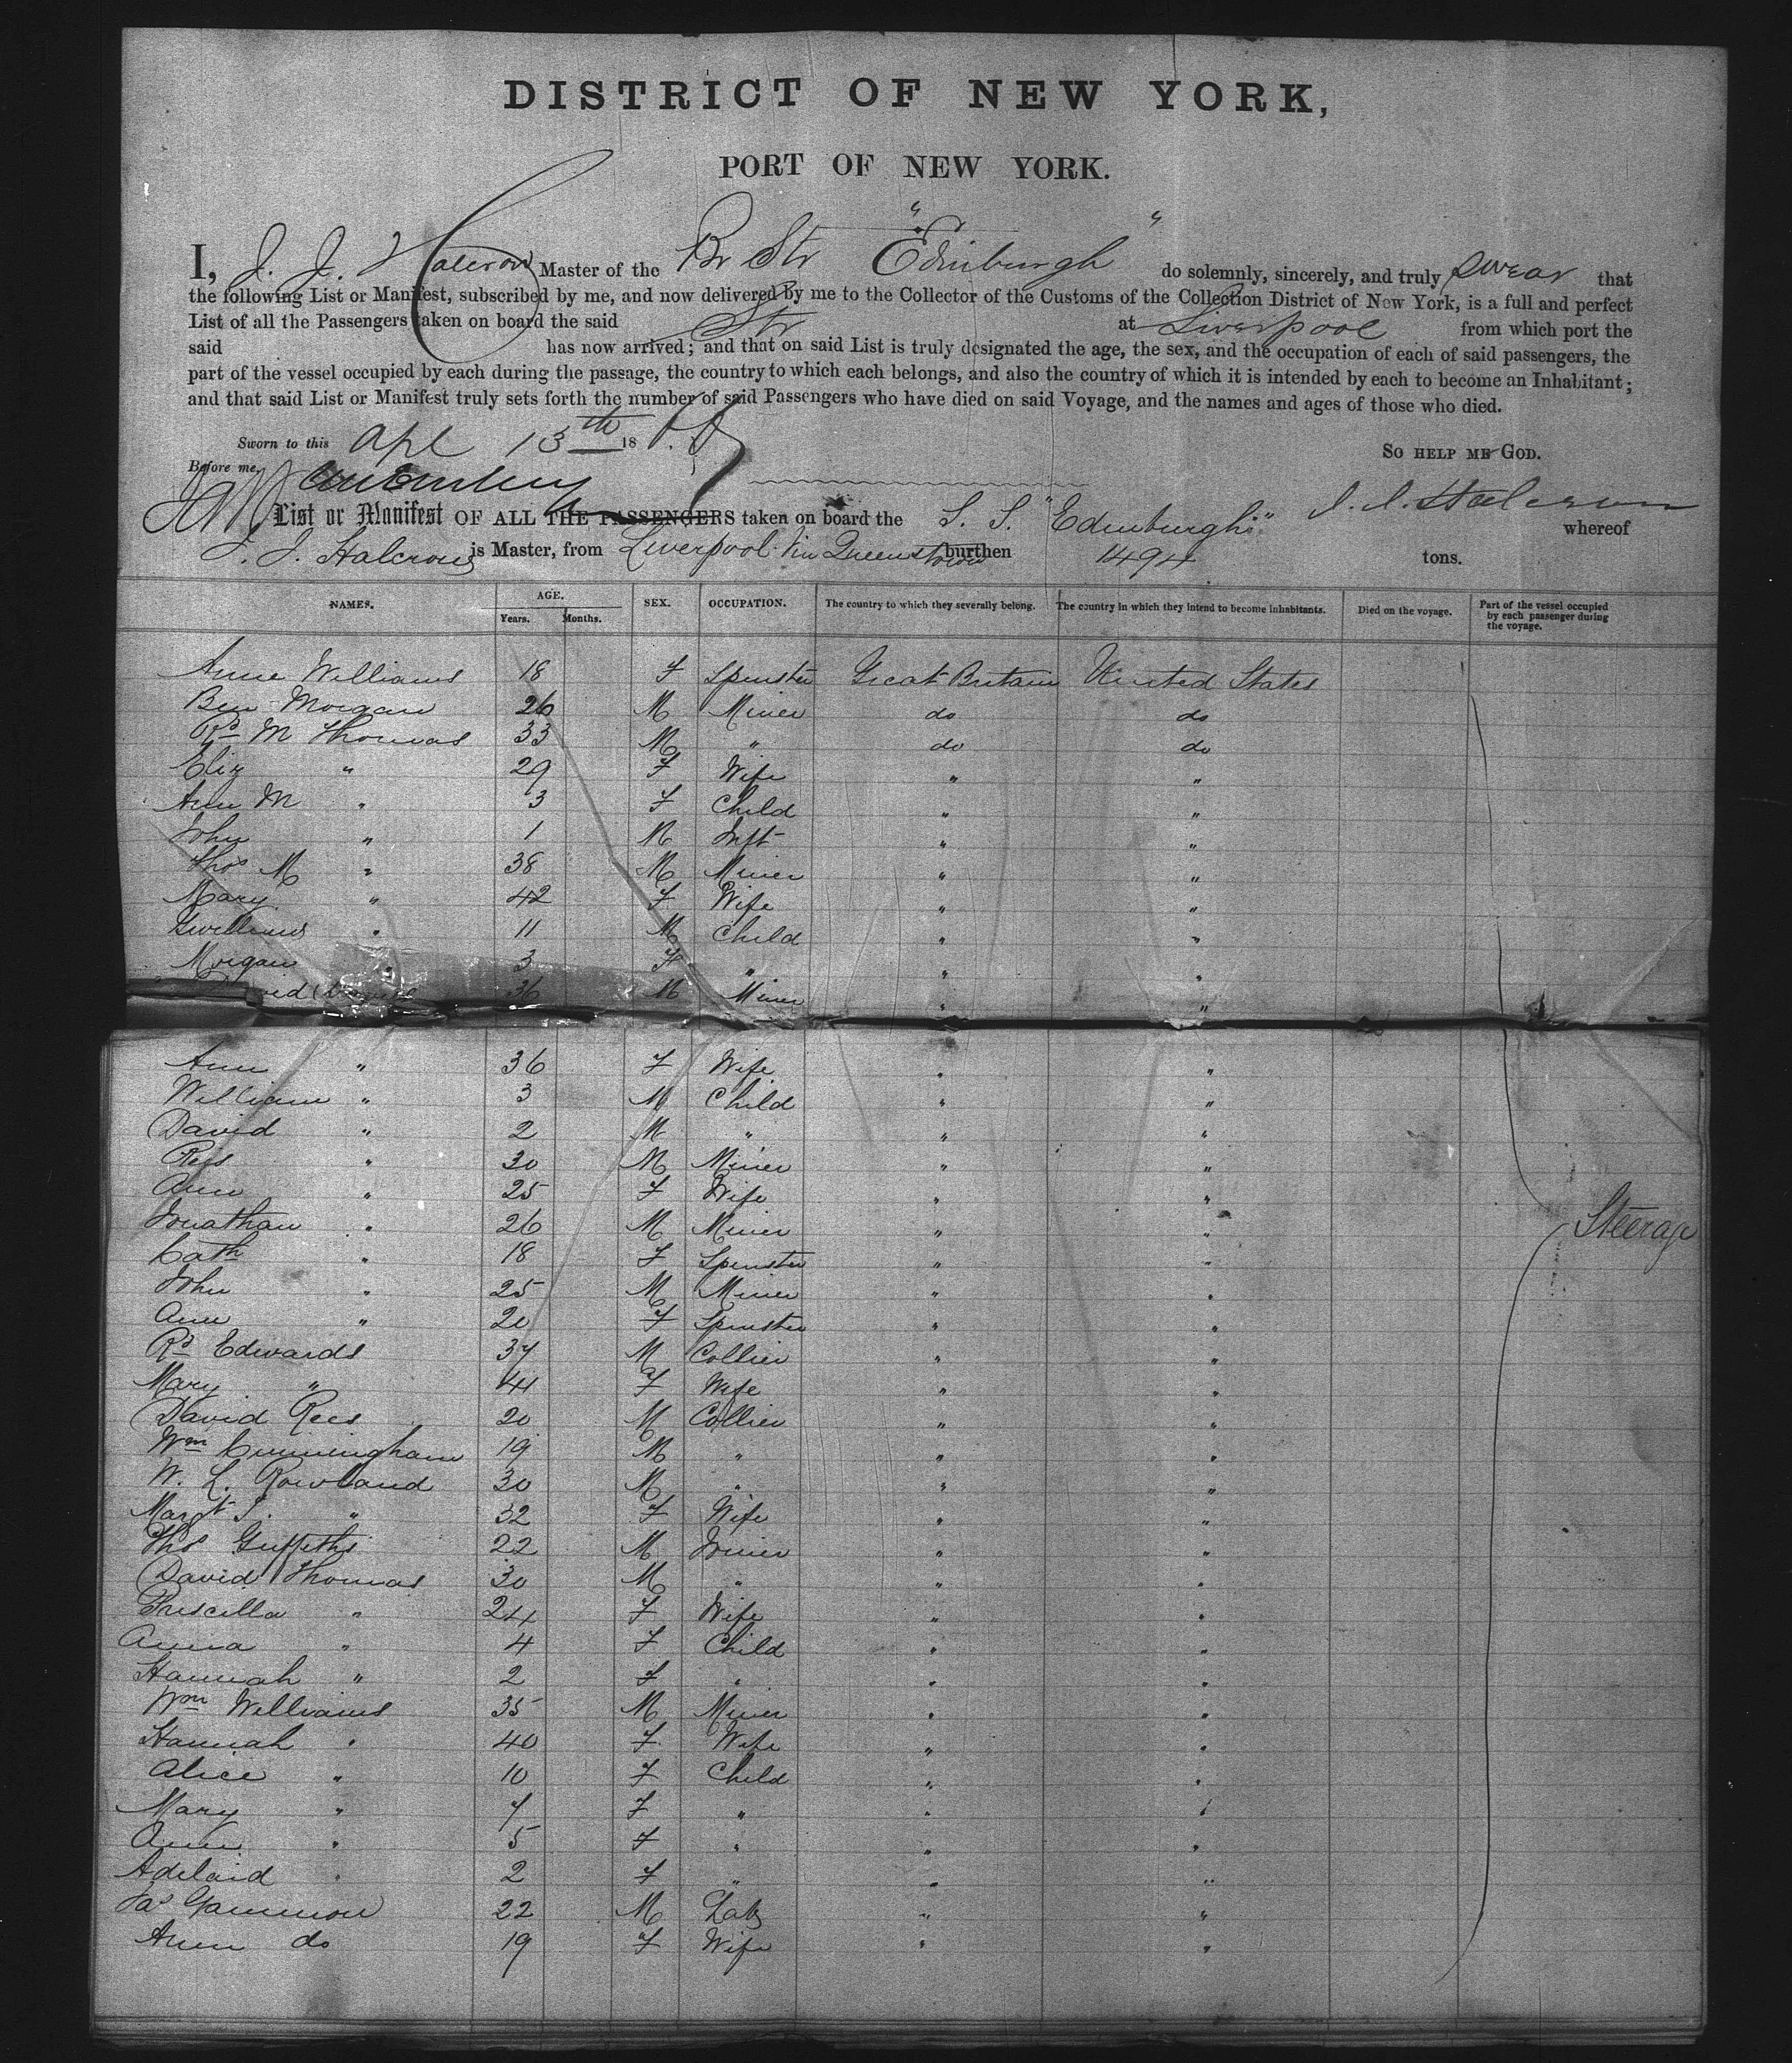 DISTRICT OF NEW YORK,
PORT OF NEW YORK.
I, J. J. Halcrow Master of the Br Str "Edinburgh" do solemnly, sincerely, and truly swear that
the following List or Manifest, subscribed by me, and now delivered by me to the Collector of the Customs of the Collection District of New York, is a full and perfect
List of all the Passengers taken on board the said Str at Liverpool from which port the
said has now arrived; and that on said List is truly designated the age, the sex, and the occupation of each of said passengers, the
part of the vessel occupied by each during the passage, the country to which each belongs, and also the country of which it is intended by each to become an Inhabitant;
and that said List or Manifest truly sets forth the number of said Passengers who have died on said Voyage, and the names and ages of those who died.
Sworn to this Apl 13th 18
SO HELP ME GOD.
Before me,
J. J. Halcrow
List or Manifest OF ALL THE PASSENGERS taken on board the S. S. "Edinburgh" whereof
J. J. Halcrow is Master, from Liverpool via Queenstown burthen 1494 tons.
NAMES. AGE. Years. Months. SEX. OCCUPATION. The country to which they severally belong. The country in which they intend to become inhabitants. Died on the voyage. Part of the vessel occupied by each passenger during the voyage.
Anne Williams 18 F Spinster Great Britain United States
Ben Morgan 26 M Miner do do
Rd M Thomas 33 M " do do
Eliz " 29 F Wife " "
Ann M " 3 F Child " "
John " 1 M Inft " "
Thos M " 38 M Miner " "
Mary " 42 F Wife " "
Gwilliam " 11 M Child " "
Morgan " 3 F " " "
David 36 M Miner " "
Ann " 36 F Wife " "
William " 3 M Child " "
David " 2 M " " "
Rees " 30 M Miner " "
Ann " 25 F Wife " "
Jonathan " 26 M Miner " "
Steerage
Cath " 18 F Spinster " "
John " 25 M Miner " "
Ann " 20 F Spinster " "
Rd Edwards 37 M Collier " "
Mary " 41 F Wife " "
David Rees 20 M Collier " "
Wm Cunningham 19 M " " "
W. L. Rowland 30 M " " "
Margt J. " 32 F Wife " "
Thos Griffiths 22 M Joiner " "
David Thomas 30 M " " "
Priscilla " 24 F Wife " "
Anna " 4 F Child " "
Hannah " 2 F " " "
Wm Williams 35 M Miner " "
Hannah " 40 F Wife " "
Alice " 10 F Child " "
Mary " 7 F " " "
Ann " 5 F " " "
Adelaid " 2 F " " "
Jas Gammon 22 M Labr " "
Ann do 19 F Wife " "